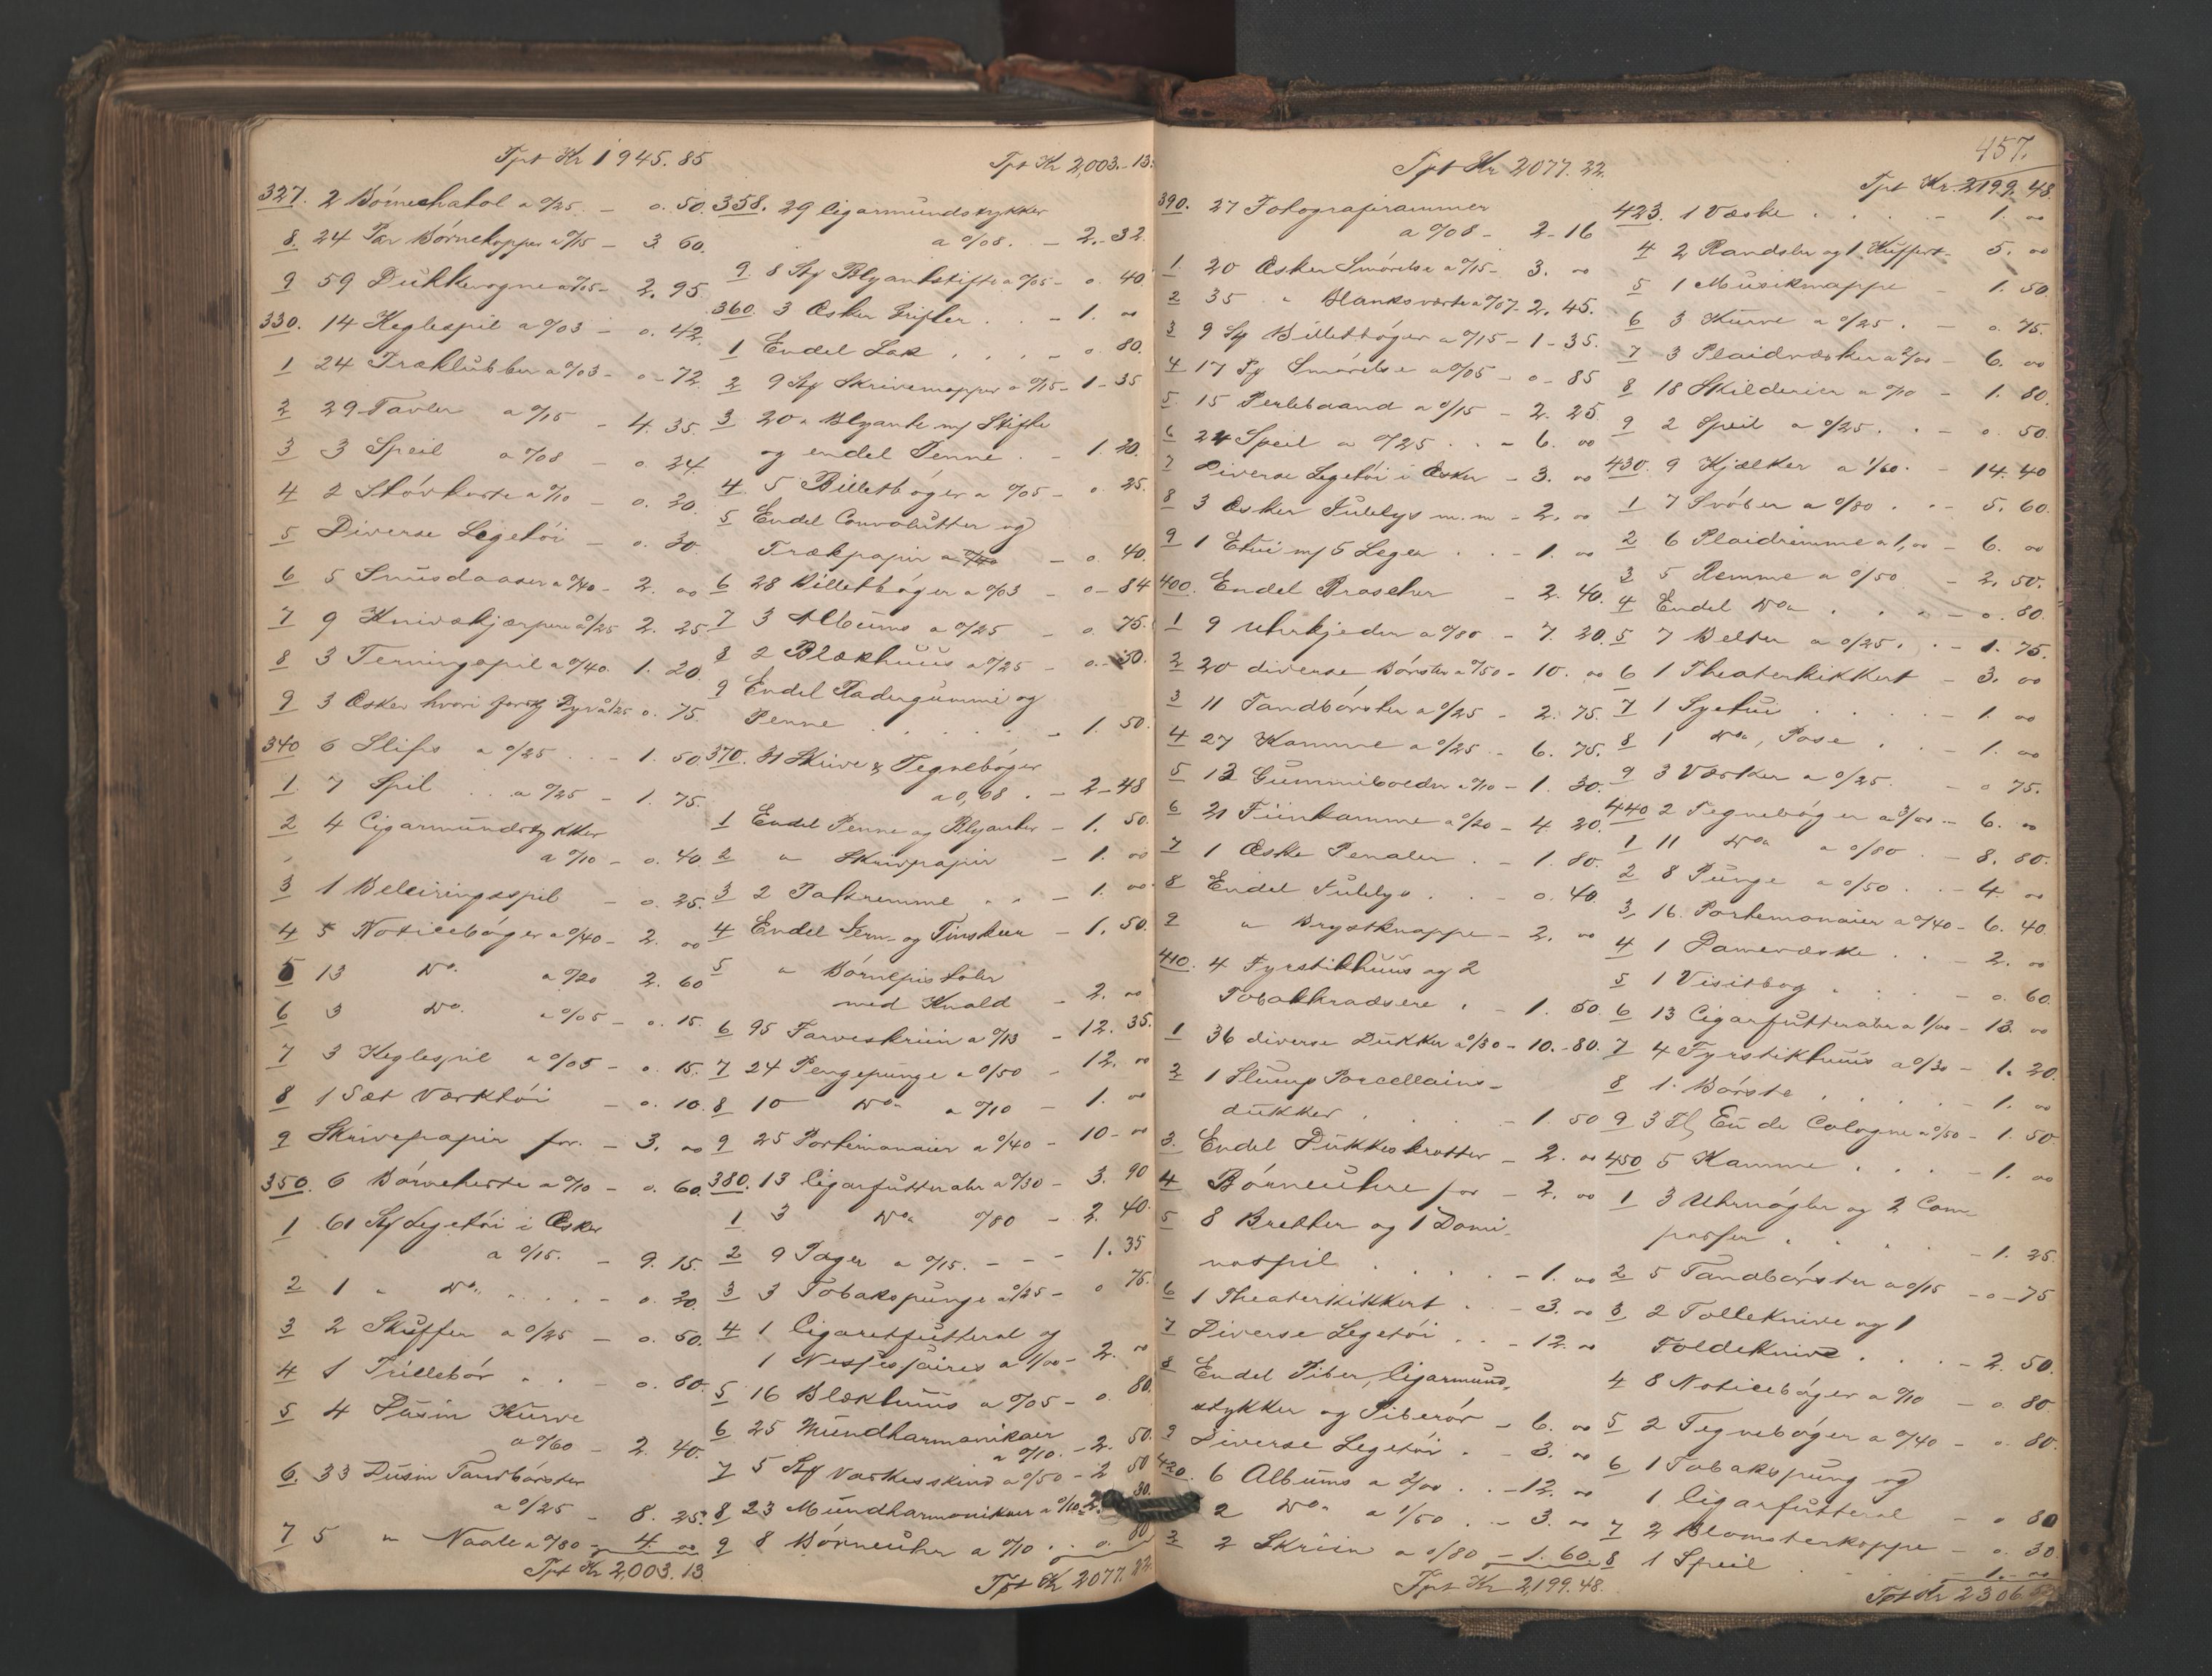 Tpt Kr 1945.85
327. 2 Börnechatol a 0/25 – 0. 50.
8. 24 Par Börnekopper a 0/15 – 3 60.
9 59 Dukkevogne a 0/05 – 2. 95.
330. 14 Keglespil a 0/03 – 0. 42.
1 24 Træklubber a 0/03 – 0 – 72.
2 29 Tavler a 0/15 – 4. 35.
3 3 Speil a 0/08 – 0. 24.
4 2 Stövkoste a 0/10 – 0. 20.
5 Diverse Legetöi – 0. 30.
6 5 Snusdaaser a 0/40 – 2. 00
7 9 Knivskjærpere a 0/25 2. 25
8 3 Terningspil a 0/40. 1. 20.
9 3 Æsker hvori forskj Dyr a 0/25 0. 75.
340 6 Slips a 0/25 – 1. 50.
1 7 Spil a 0/25 – 1. 75.
2 4 Cigarmundstykker
a 0/10 – 0. 40
3 1 Beleiringsspil – 0. 25.
4 5 Noticebøger a 0/40 – 2. 00
5 13 Do. a 0/20 2. 60
6 3 Do. a 0/05 – 0. 15.
7 3 Keglespil a 0/05 – 0. 15.
8 1 Sæt Værktöi – 0. 10.
9 Skrivepapir for. – 3. 00
350. 6 Börneheste a 0/10 – 0. 60.
1 61 Stk Legetöi i Æsker
a 0/15. – 9. 15.
2 1 " Do. – 0. 20.
3 2 Skuffer a 0/25 – 0. 50.
4 1 Trillebör – 0. 80.
5 4 Dusin Kurve
a 0/60 – 2. 40.
6. 33 Dusin Tandbörster
a 0/25 – 8. 25.
7 5 " Naale a 0/80 – 4. 00
Tpt Kr 2,003.13.
Tpt Kr 2,003.–13.
358. 29 Cigarmundstykker
a 0/08. – 2.–32.
9. 8 Stk Blyantstifte a 0/05 – 0. 40.
360. 3 Æsker Grifler – 1. 00
1 Endel Lak – 0. 80.
2 9 Stk Skrivemapper a 0/15 – 1–35
3 20 " Blyante m/ Stifte
og endel Penne – 1. 20.
4. 5 Billetbøger a 0/05 – 0. 25.
5 Endel Convolutter og
Trækpapir – 0. 40.
6 28 Billetbøger a 0/03 – 0–84
7 3 Albums a 0/25 – 0. 75.
8 2 Blækhuus a 0/25 – 0.–50.
9 Endel Radergummi og
Penne – 1. 50.
370. 31 Skrive & Tegnebøger
a 0,08. – 2–48
1 Endel Penne og Blyanter – 1. 50.
2 " Skrivpapir – 1. 00
3 2 Pakremme – 1. 00
4 Endel Jern- og Tinskeer – 1. 50.
5 " Börnepistoler
med Knald – 2. 00
6 95 Farveskriin a 0/13 – 12. 35.
7 24 Pengepunge a 0/50 – 12. 00
8 10 Do. a 0/10 – 1. 00
9 25 Portemonaier a 0/40 – 10–00
380. 13 Cigarfutteraler a 0/30 – 3. 90
1 3 Do. 0/80 – 2. 40.
2 9 Tøger a 0/15. – 1. 35
3 3 Tobakspunge a 0/25 – 0 75.
4 1 Cigaretfutteral og
1 a 1/00 – 2. 00
5 16 Blækhuus a 0/05 – 0 80.
6 25 Mundharmonikaer
a 0/10. – 2. 50.
7 5 Stk Vaskeskind a 0/50 – 2 50
8 23 Mundharmonikaer a 0/10 – 2 30.
9 8 Börneuhre a 0/10 . 0. 80
Tpt Kr 2077.22.
457.
Tpt Kr 2077.22.
390. 27 Fotografirammer
a 0/08 – 2–16
1. 20 Æsker Smörelse a 0/15 – 3. 00
2 35 " Blanksværte a 0/07 – 2. 45.
3 9 Stk Billetbøger a 0/15 – 1–35.
4 17 Smörelse a 0/05 – 0–85
5. 15 Perlebaand a 0/15 – 2. 25.
6 24 Speil a 0/25 – 6. 00
7 Diverse Legetöi i Æsker – 3. 00
8 3 Æsker Julelys m.m – 2. 00
9 1 Etui m/ 5 Leger – 1. 00
400. Endel Broscher – 2. 40.
1 9 Uhrkjeder a 0/80 – 7. 20.
2 20 diverse Börster a 0/50 – 10. 00
3 11 Tandbörster a 0/25 – 2. 75.
4 27 Kamme a 0/25 – 6. 75.
5 13 Gummibolder a 0/10 – 1. 30.
6 21 Fiinkamme a 0/20 – 4 20.
7 1 Æske Penaler – 1. 80.
8 Endel Julelys – 0. 40.
9 " Brystknappe – 2. 00
410. 4 Fyrstikhuus og 2
Tobakkradsere – 1. 50.
1 36 diverse Dukker a 0/30 – 10.–80.
2 1 Slump Porcellains-
dukker – 1. 50
3. Endel Dukkeskrotter – 2. 00
4 Börneuhre for – 2. 00
5 8 Bretter og 1 Domi-
nospil – 1. 00
6 1 Theaterkikkert – 3. 00
7 Diverse Legetöi – 12. 00
8 Endel Piber, Cigarmund-
stykker og Piberör – 6. 00
9 Diverse Legetöi – 3. 00
420. 6 Albums a 2/00 – 12. 00
2 Do. a 1/50 – 3. 00
2 2 Skriin a 0/80 – 1. 60
Tpt Kr 2,199.48.
Tpt Kr. 2199.48.
423. 1 Væske – 1. 00
4 2 Randsler og 1 Kuffert – 5. 00
5 1 Musikmappe – 1. 50
6 3 Kurve a 0/25 – 0. 75.
7 3 Plaidvæsker a 2/00 – 6. 00
8 18 Skilderier a 0/10 – 1. 80.
9 2 Speil a 0/25 – 0. 50.
430. 9 Kjælker a 1/60. – 14. 40
1 7 Svöber a 0/80 – 5. 60.
2 6 Plaidremme a 1,00 – 6. 00
3 5 Remme a 0/50 – 2. 50.
4 Endel Do. – 0. 80.
5 7 Belter a 0/25 – 1. 75.
6 1 Theaterkikkert – 3. 00
7 1 Syetui – 1. 00
8 1 Do., Pose – 1. 00
9 3 Væsker a 0/25. – 0 75.
440 2 Tegnebøger a 3/00 – 6. 00
1 11 Do. a 0/80 – 8. 80.
2 8 Punge a 0/50 – 4 00
3, 16. Portemonaier a 0/40 – 6. 40.
4 1 Damevæske – 2. 00
5 1 Visitbog – 0. 60.
6 13 Cigarfutteraler a 1/00 – 13. 00
7 4 Fyrstikhuus a 0/30 – 1. 20.
8 1 Börste – 1. 00
9 3 Fl, Eu de Cologne a 0/50 – 1. 50.
450 5 Kamme – 1. 00
1 3 Uhrnøgler og 2 Com-
passer – 1. 25.
2 5 Tandbörster a 0/15 – 0–75
3 2 Tolleknive og 1
Foldekniv – 2. 50.
4 8 Noticebøger a 0/10 – 0. 80.
5 2 Tegnebøger a 0/40 – 0. 80.
6 1 Tobakspung og
1 Cigarfutteral – 0 80
7 2 Blomsterkopper – 0. 30.
8 1 Speil 1.–00
Tpt Kr 2306